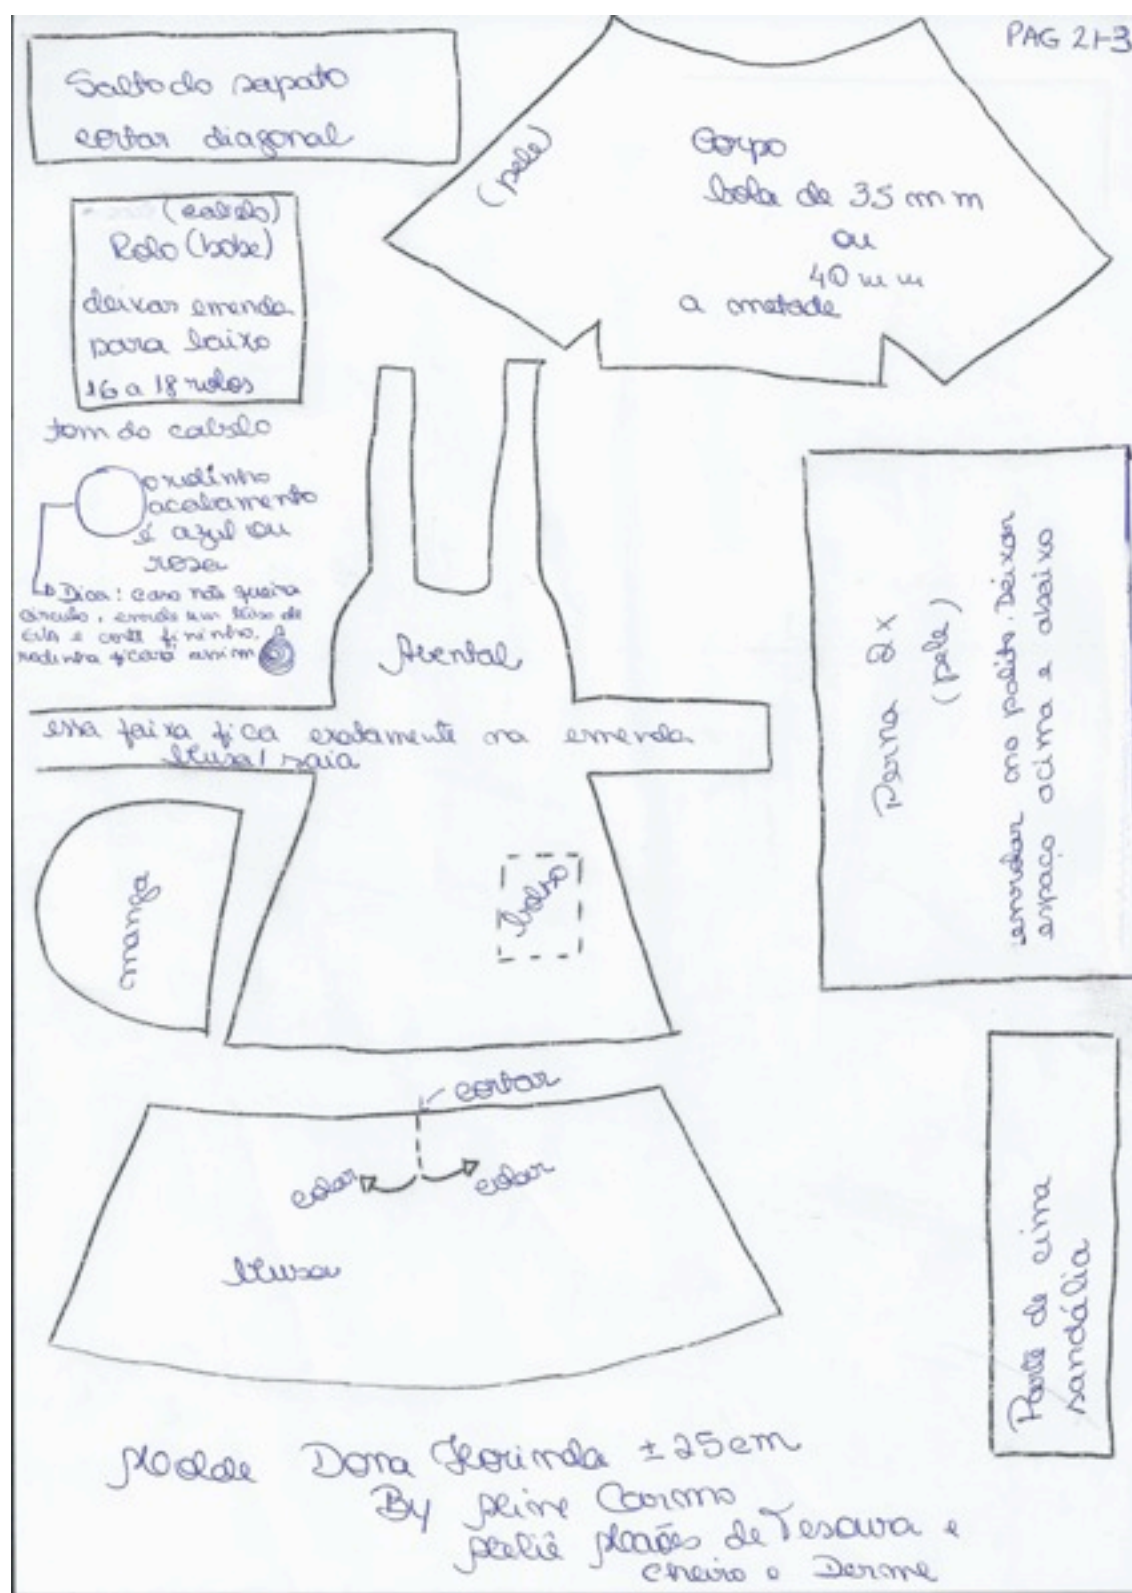 PAG 21-3
Salto do sapato
cortar diagonal
(pele)
Corpo
bola de 35 mm
ou
40 mm
a metade
(cabelo)
Rolo (bobe)
deixar emenda
para baixo
16 a 18 rolos
tom do cabelo
rodinho
acabamento
é azul ou
rosa
Dica: caso não queira
circulo, enrole um lisso de
EVA e corte fininho.
rodinha ficará assim
Avental
essa faixa fica exatamente na emenda
blusa/saia
Perna 2x
(pele)
enrolar no palito. Deixar
espaço acima e abaixo
manga
bolso
cortar
colar
colar
blusa
Parte de cima
sandália
Molde Dona Florinda ± 25cm
By Aline Carmo
Ateliê Mãos de Tesoura e
cheiro e Derme